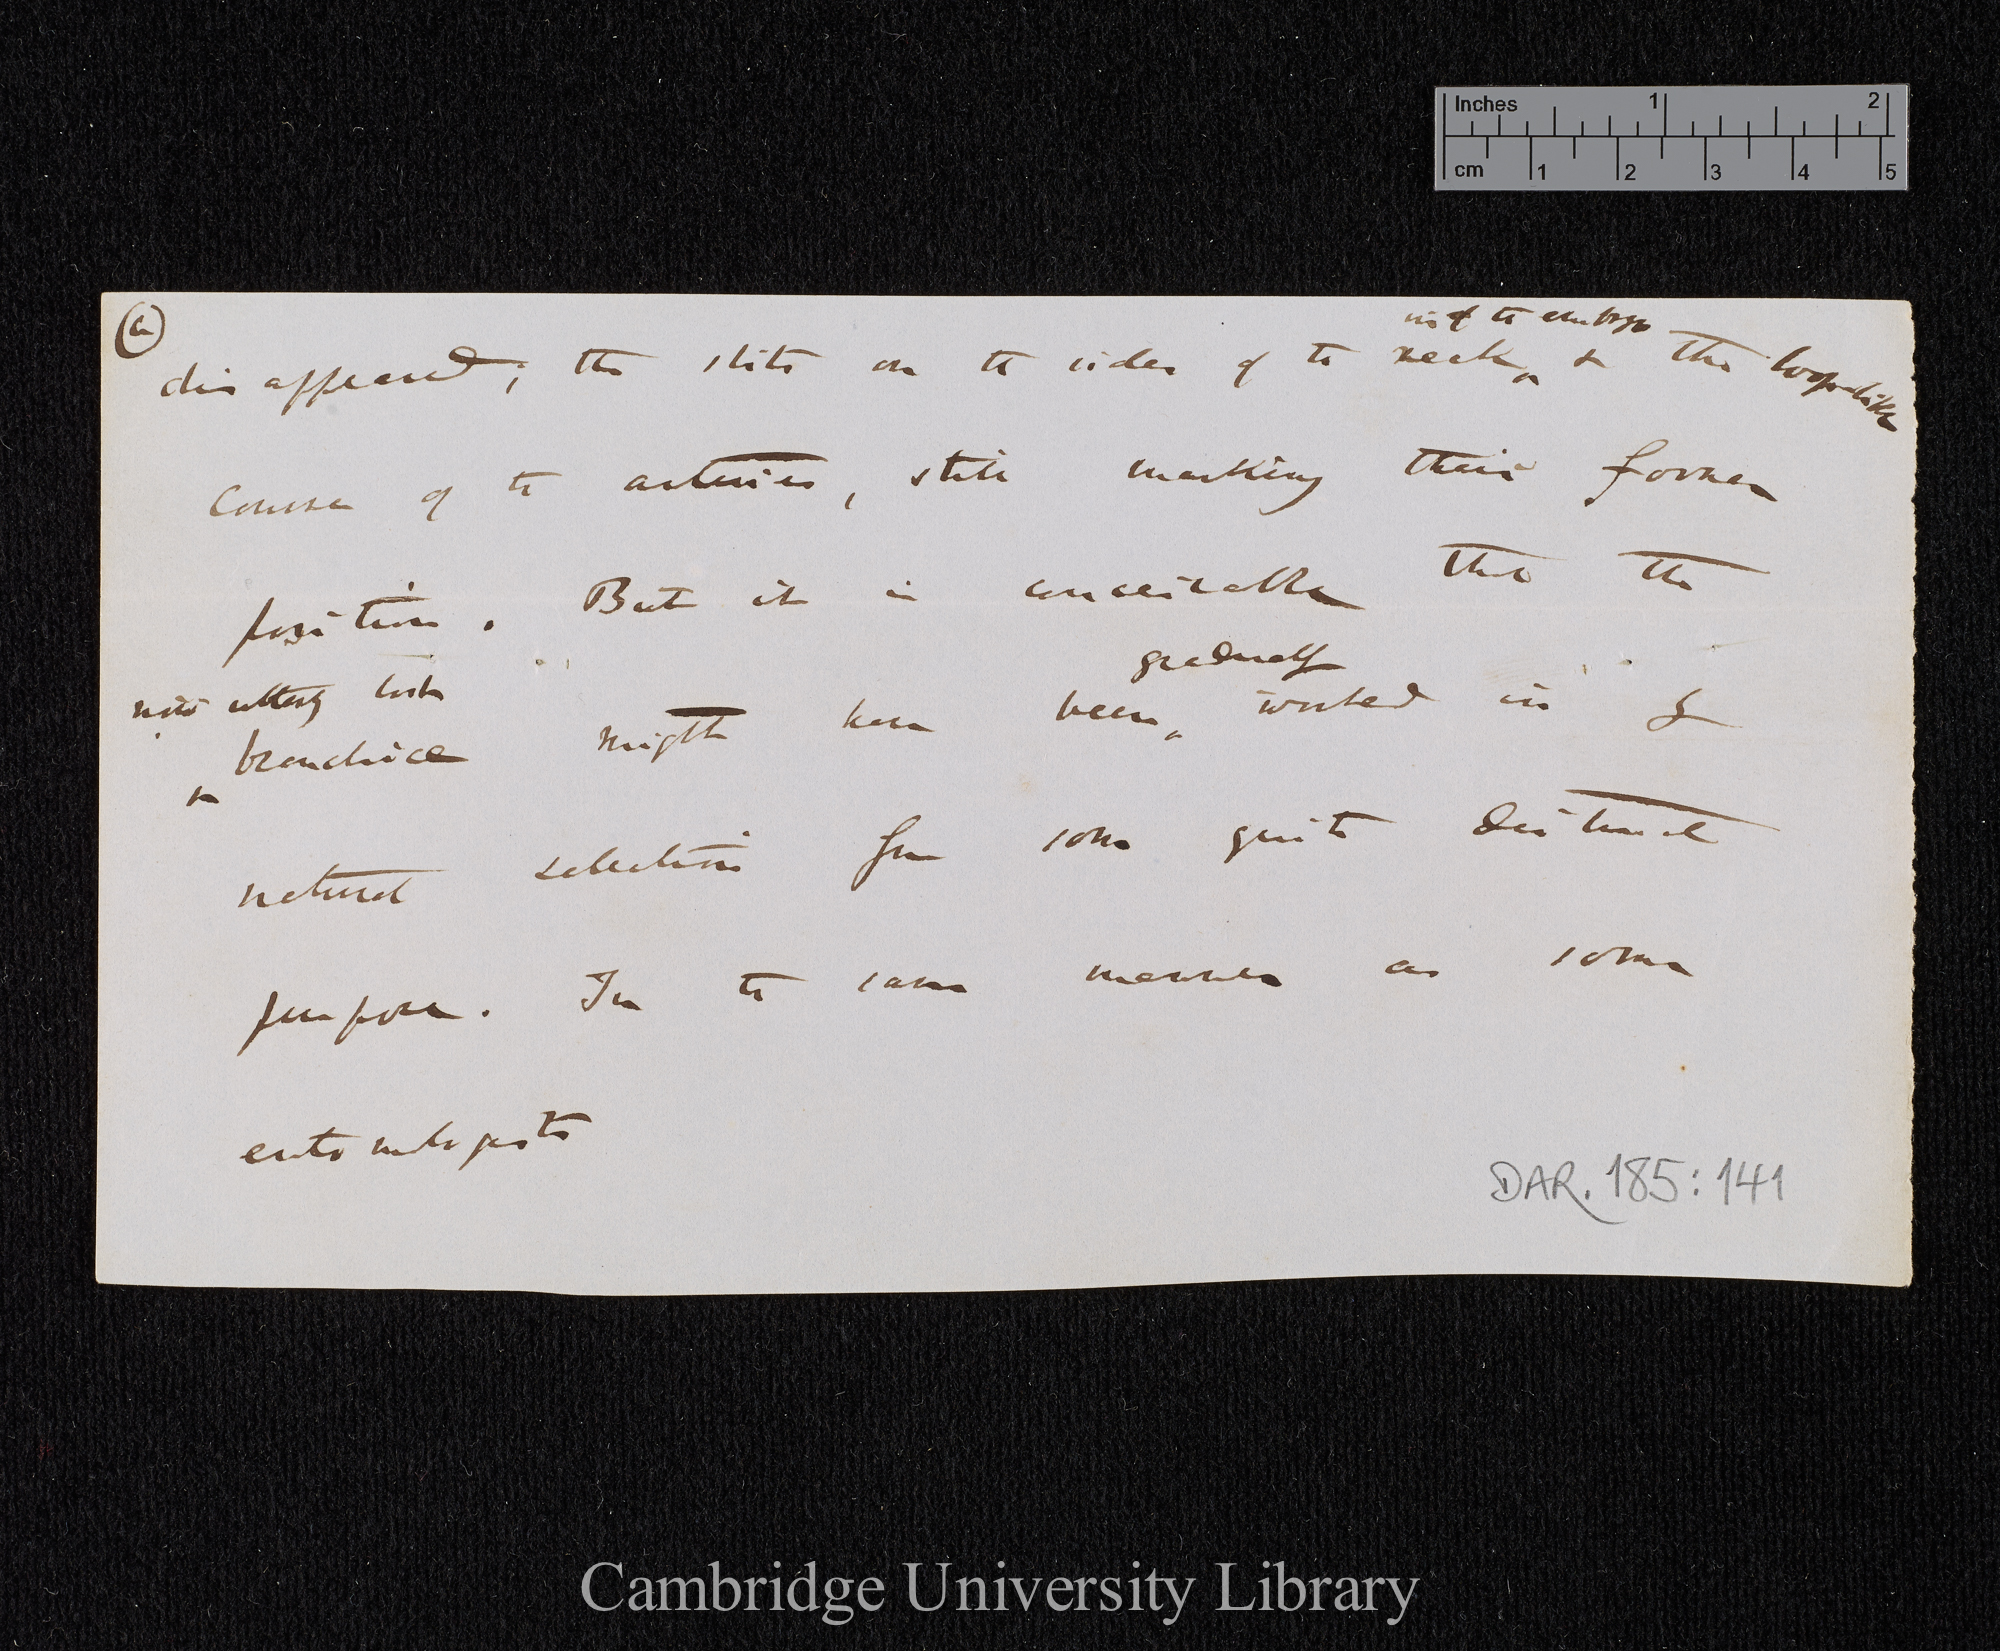 Inches 1 2
cm 1 2 3 4 5
(a)
in of the embryo
disappeared; the slits on the sides of the neck, & the loop-like
course of the arteries, still marking their former
position. But it is conceivable that the
gradually
now utterly lost
branchiæ might have been worked in by
natural selection for some quite distinct
purpose. In the same manner as some
entomologists
DAR. 185:141
Cambridge University Library